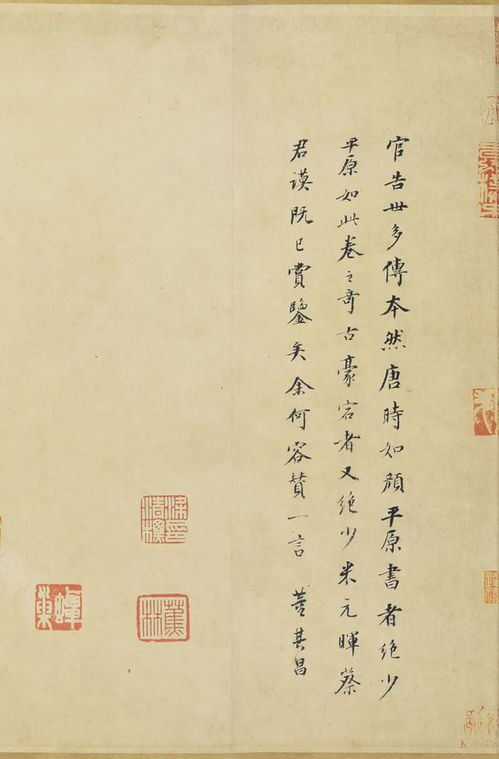 官告世多傳本然唐時如顏平原書者絕少
平原如此卷之奇古豪宕者又絕少米元暉蔡
君謨既已賞鑒矣余何容贊一言　董其昌
梁印清標
蕉林